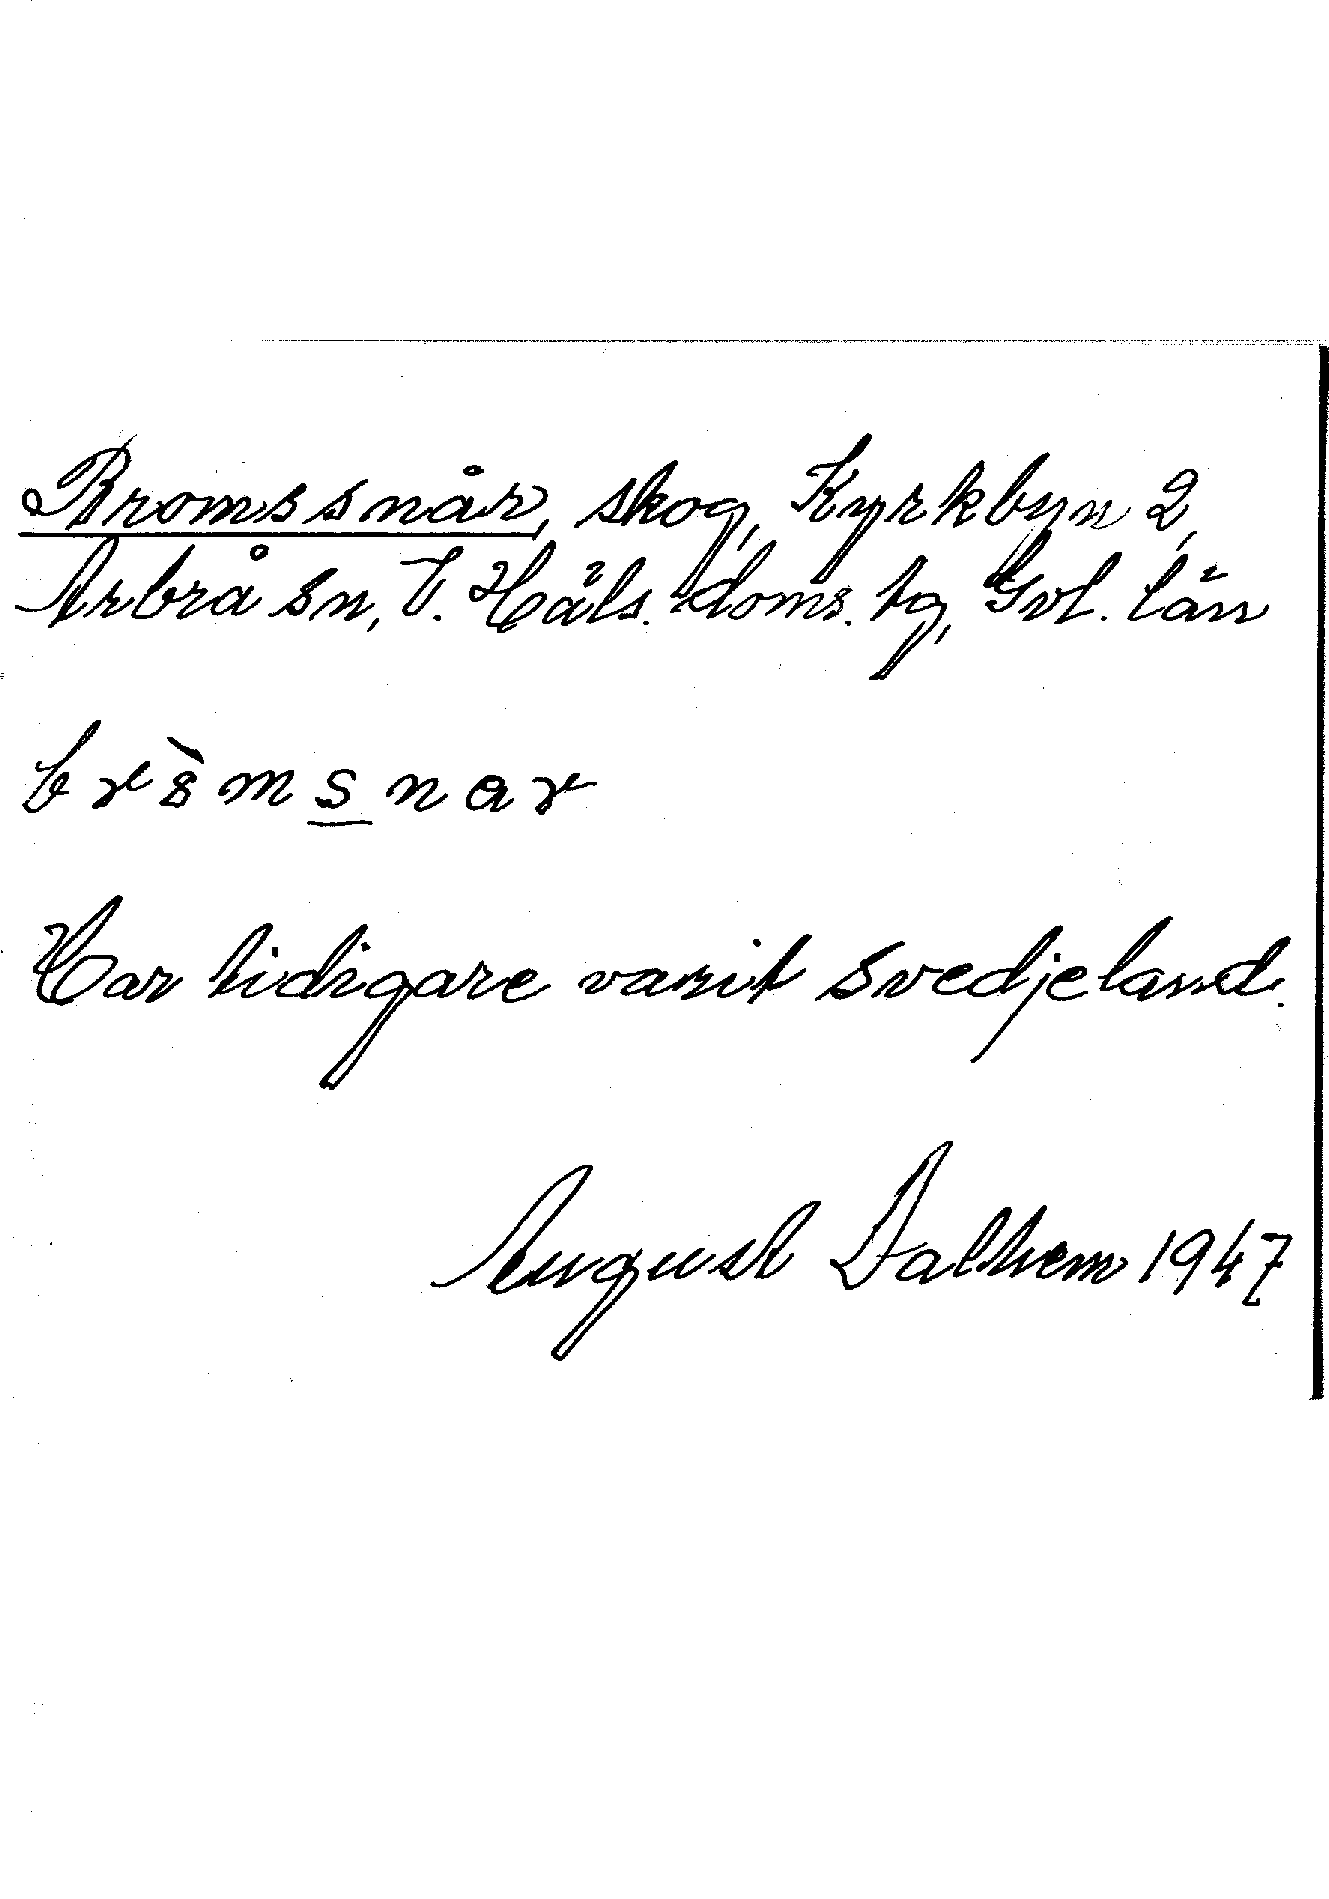 Bromssnår, skog, Kyrkbyn 2,
Arbrå sn, V. Häls. doms. tg, Gvl. län
Har tidigare varit svedjeland.
August Dalhem 1947